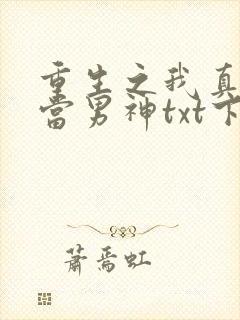 重生之我真
当男神txt下
萧焉虹